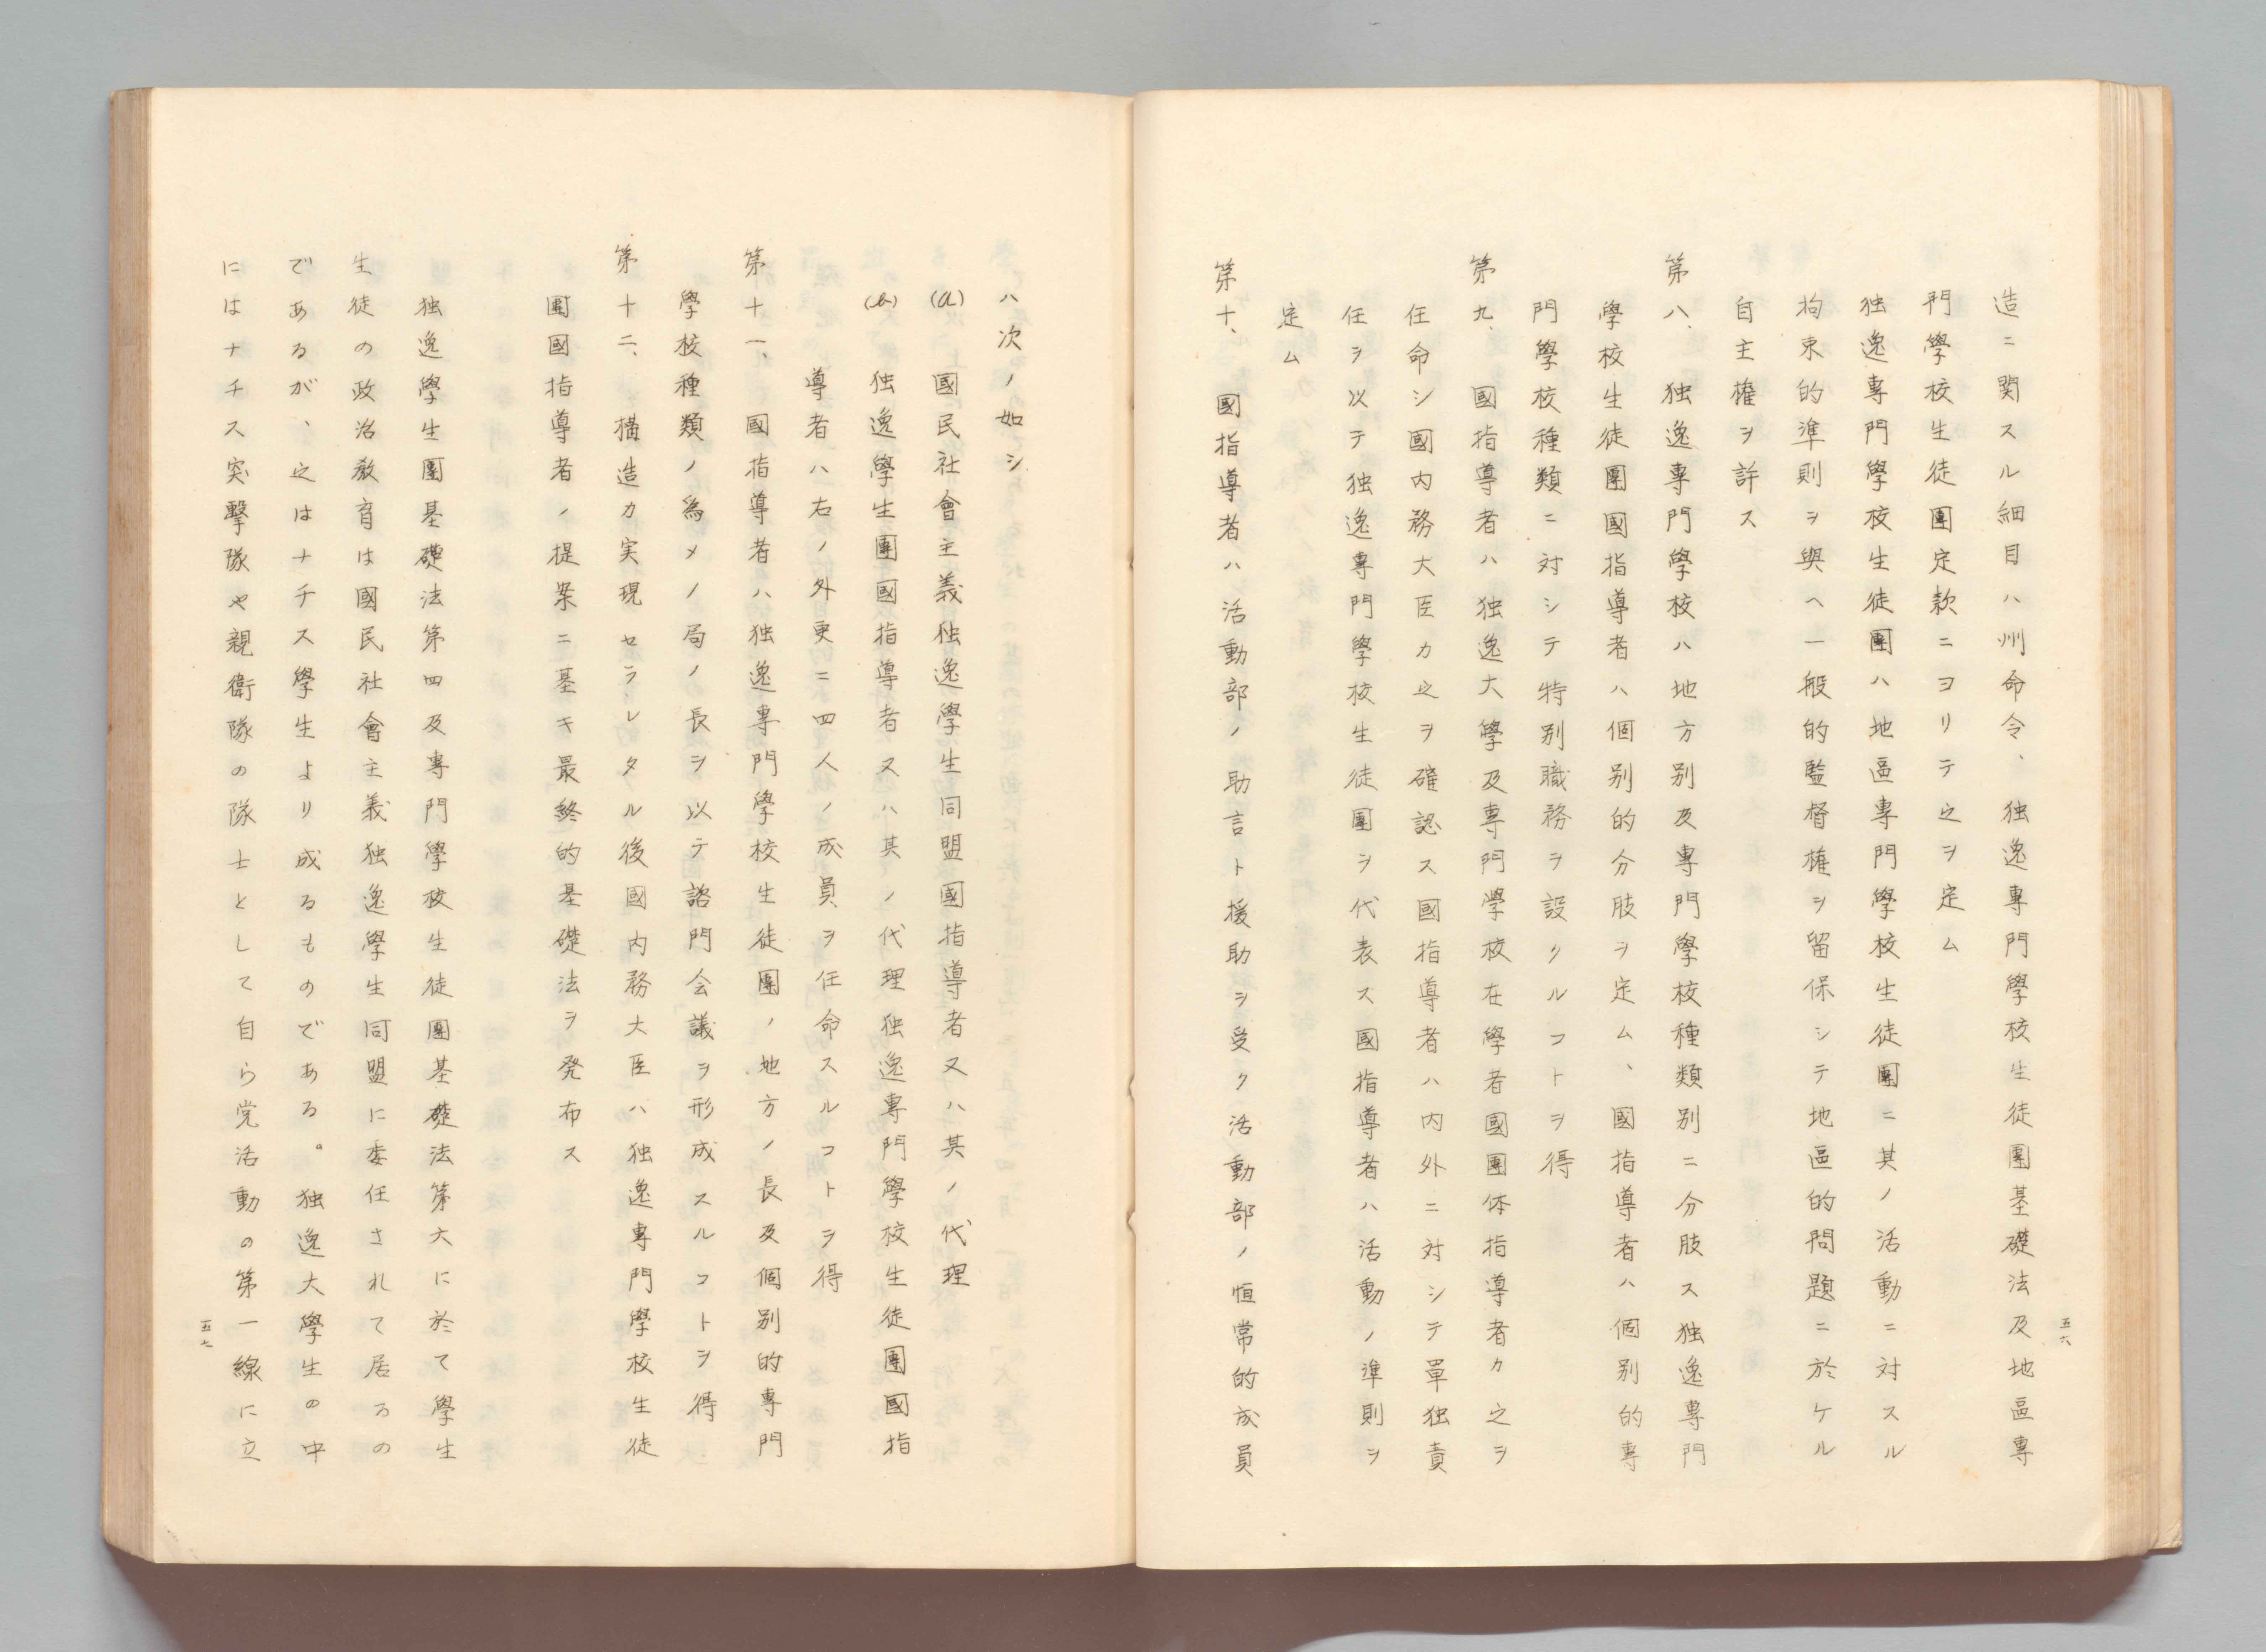 造ニ関スル細目ハ州命令、独逸專門学校生徒團基礎法及地區專
門學校生徒團定款ニヨリテ之ヲ定ム
独逸專門學校生徒團ハ地區專門學校生徒團ニ其ノ活動ニ対スル
拘束的準則ヲ與ヘ一般的監督権ヲ留保シテ地區的問題ニ於ケル
自主権ヲ許ス
第八、独逸專門學校ハ地方別及專門學校種類別ニ分肢ス独逸專門
學校生徒團國指導者ハ個別的分肢ヲ定ム、國指導者ハ個別的專
門學校種類ニ対シテ特別職務ヲ設クルコトヲ得
第九、國指導者ハ独逸大學及專門學校在學者國團体指導者カ之ヲ
任命シ國内務大臣カ之ヲ確認ス國指導者ハ内外ニ対シテ單独責
任ヲ以テ独逸專門學校生徒團ヲ代表ス國指導者ハ活動ノ準則ヲ
定ム
第十、國指導者ハ活動部ノ助言ト援助ヲ受ク活動部ノ恒常的成員
五六
ハ次ノ如シ
(a) 國民社會主義独逸學生同盟國指導者又ハ其ノ代理
(b) 独逸學生團國指導者又ハ其ノ代理独逸專門學校生徒團國指
導者ハ右ノ外更ニ四人ノ成員ヲ任命スルコトヲ得
第十一、國指導者ハ独逸專門學校生徒團ノ地方ノ長及個別的專門
學校種類ノ為メノ局ノ長ヲ以テ諮門会議ヲ形成スルコトヲ得
第十二、構造カ実現セラレタル後國内務大臣ハ独逸專門學校生徒
團國指導者ノ提案ニ基キ最終的基礎法ヲ発布ス
独逸學生團基礎法第四及專門學校生徒團基礎法第六に於て學生
生徒の政治教育は國民社會主義独逸學生同盟に委任されて居るの
であるが、之はナチス學生より成るものである。独逸大學生の中
にはナチス突擊隊や親衛隊の隊士として自ら党活動の第一線に立
五七